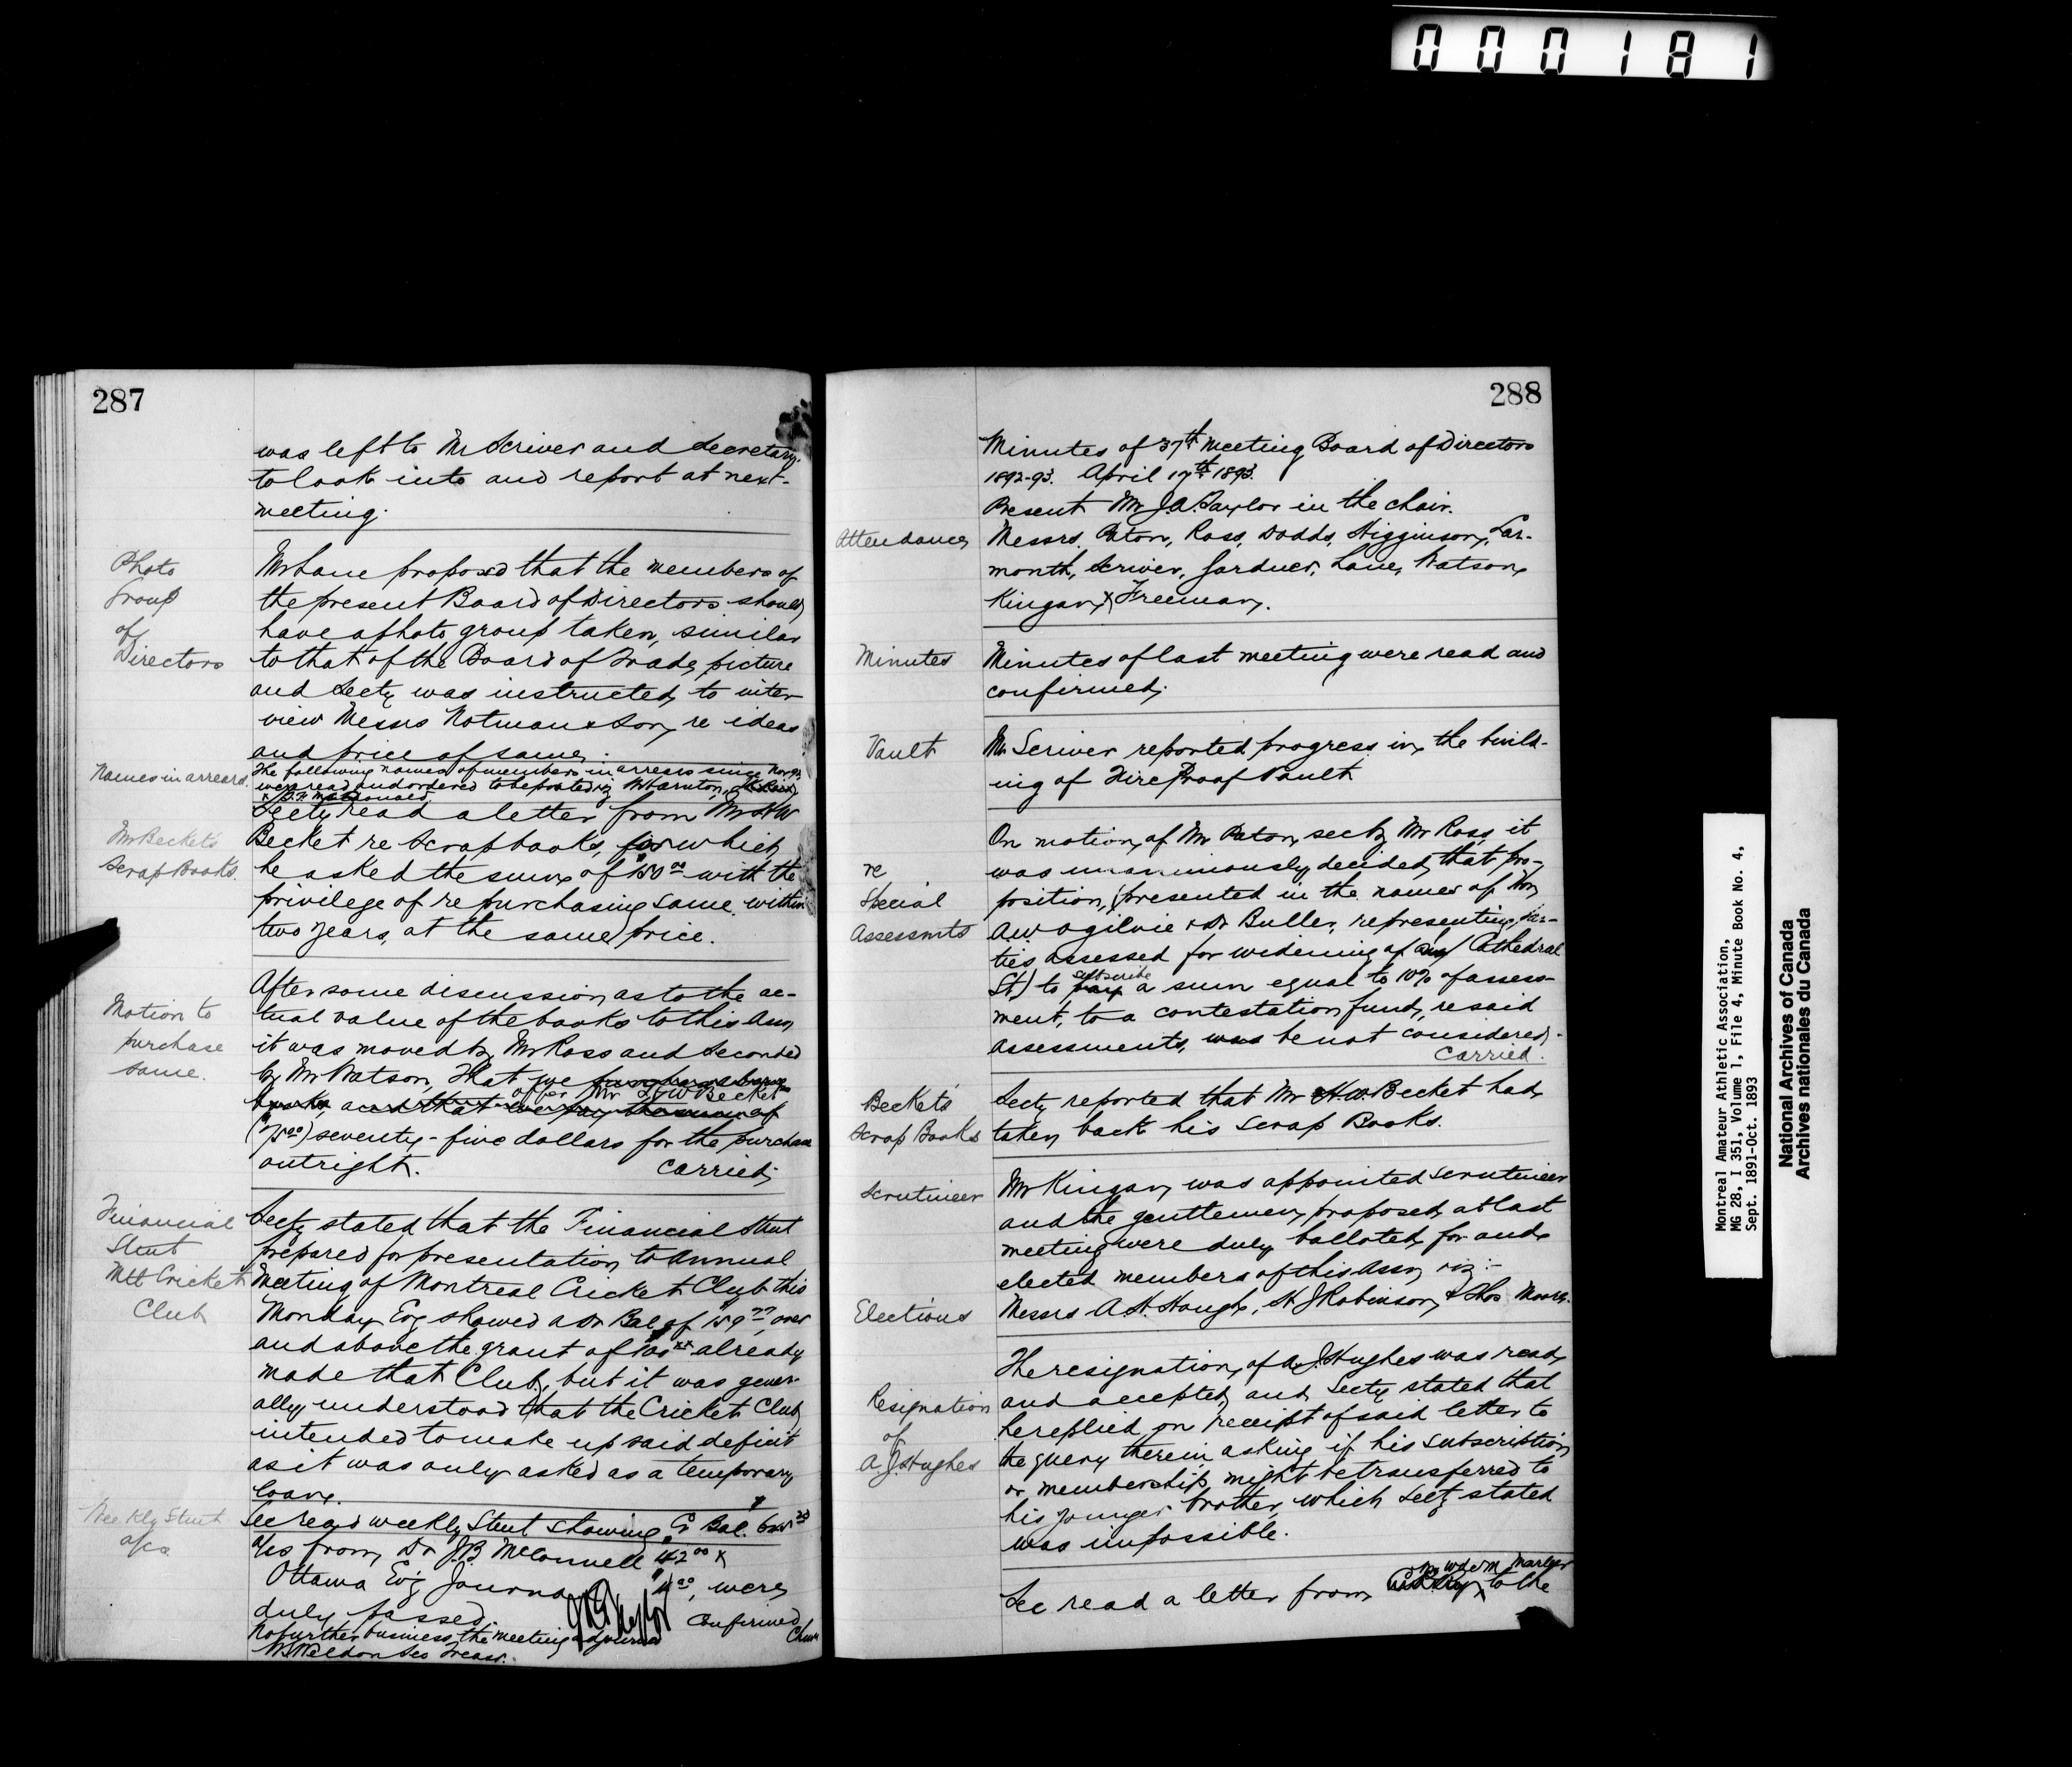 000181
287
was left to Mr Scriver and Secretary
to look into and report at next
meeting.
Photo
Group
of
Directors
Mr Lane proposed that the members of
the present Board of Directors should
have a photo group taken, similar
to that of the Board of Trade, picture
and Secty was instructed, to inter-
view Messrs Notman & Son, re ideas
and price of same.
Names in arrears.
The following names of members in arrears since Nov. 92
were read and ordered to be posted viz
Macdonald.
Secty read a letter from Mr H W
Mr Becket's
Scrap Books.
Becket re Scrap books, for which
he asked the sum of $150.00 with the
privilege of repurchasing same within
two years, at the same price.
Motion to
purchase
same.
After some discussion as to the ac-
tual value of the books to this Assn
it was moved by Mr Ross and Seconded
by Mr Watson, That we
offer Mr H W Becket
($75.00) seventy-five dollars for the purchase
outright. Carried.
Financial
Stmt
Mtl Cricket
Club
Secty stated that the Financial Stmt
prepared for presentation to Annual
Meeting of Montreal Cricket Club this
Monday Evg showed a Dr Bal of over
and above the grant of $100.xx already
made that Club, but it was gener-
ally understood that the Cricket Club
intended to make up said deficit
as it was only asked as a temporary
loan.
Weekly Stmt
a/cs
Sec read weekly Stmt showing Cr Bal.
a/cs from Dr J.B. McConnell $42.00 &
Ottawa Ev'g Journal $4.00, were
duly passed. Confirmed
No further business the meeting adjourned
Weldon Sec Treasr.
J A Taylor
Chmn
288
Minutes of 37th Meeting Board of Directors
1892-93. April 17th 1893.
Present Mr J.A. Taylor in the chair.
Attendance
Messrs. Paton, Ross, Dodds, Higginson, Lar-
month, Scriver, Gardner, Lane, Watson,
Kingan, & Freeman.
Minutes
Minutes of last meeting were read and
confirmed.
Vault
Mr Scriver reported progress in the build-
ing of Fire Proof Vault
re
Special
Assessmts
On motion of Mr Paton, sec by Mr Ross, it
was unanimously decided, that pro-
position, (presented in the names of Hon
A W Ogilvie & Dr Buller, representing par-
ties assessed for widening of Cathedral
St) to subscribe a sum equal to 10% of assess-
ment, to a contestation fund, re said
assessments, was be not considered.
Carried.
Beckets
Scrap Books
Secty reported that Mr H.W. Becket had
taken back his Scrap Books.
Scrutineer
Mr Kingan was appointed Scrutineer
and the gentlemen proposed at last
meeting were duly balloted for and
elected members of this Assn viz:-
Elections
Messrs A.H. Hough, H J Robinson, & Thos Moore.
Resignation
of
A.J. Hughes
The resignation, of A.J. Hughes was read,
and accepted, and Secty stated that
he replied on receipt of said letter to
the query therein asking if his subscription
or membership might be transferred to
his younger brother, which Secty stated
was impossible.
Sec read a letter from Mr Wm Marler to the
Montreal Amateur Athletic Association,
MG 28, I 351, Volume 1, File 4, Minute Book No. 4,
Sept. 1891-Oct. 1893
National Archives of Canada
Archives nationales du Canada